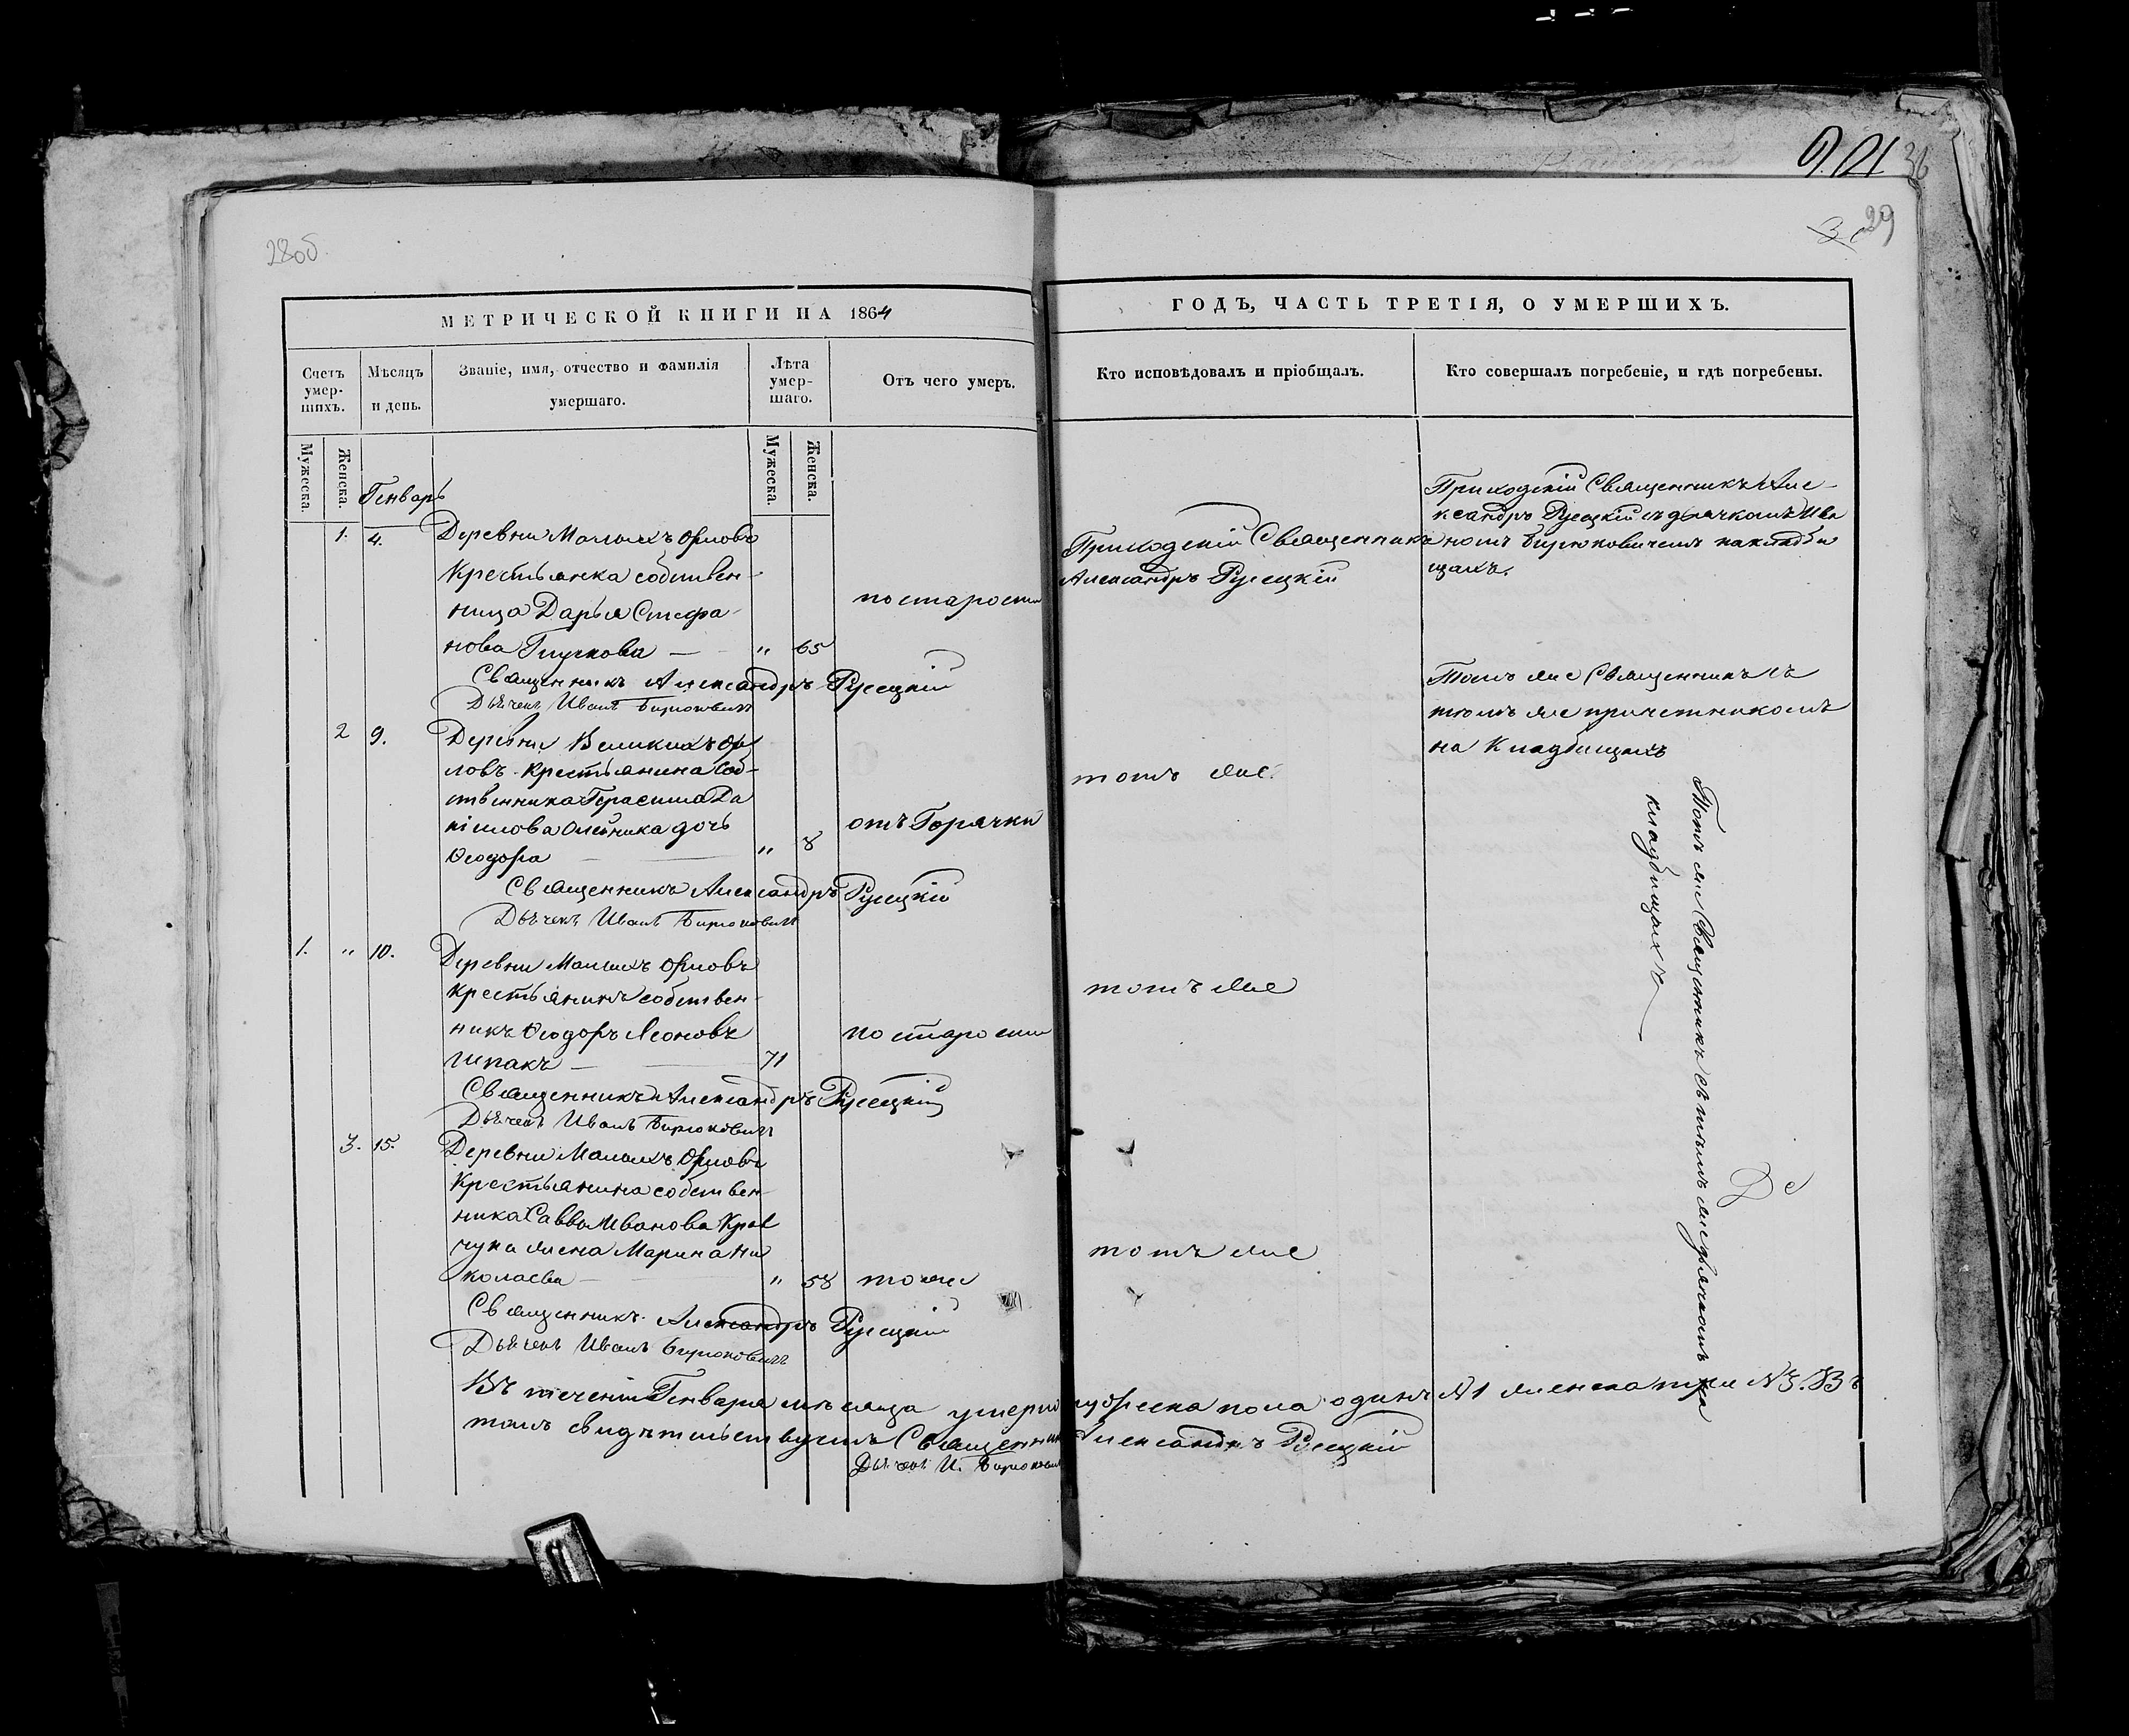 28об.
29
МЕТРИЧЕСКОЙ КНИГИ НА 1864
ГОДЪ, ЧАСТЬ ТРЕТІЯ, О УМЕРШИХЪ.
Счетъ умершихъ.
Мѣсяцъ и день.
Званіе, имя, отчество и фамилія умершаго.
Лѣта умершаго.
Отъ чего умеръ.
Кто исповѣдовалъ и пріобщалъ.
Кто совершалъ погребеніе, и гдѣ погребены.
Мужеска.
Женска.
Мужеска.
Женска.
Генварь
1. 4.
Деревни Малыхъ Орловъ
Крестьянка собствен-
ница Дарья Стефа-
нова — " 65
по старости
Приходскій Священникъ
Александръ Русецкій
Приходскій Священникъ Але-
ксандръ Русецкій съ дьячкомъ Ива
номъ Бирюковичемъ на кладби
щахъ.
Священникъ Александръ Русецкій
Дьячекъ Иванъ Бирюковичъ
2 9.
Деревни Великихъ Ор
ловъ Крестьянина соб-
ственника Герасима Да
нілова Олейника дочь
Ѳеодора — " 8
отъ Горячки
тотъ же
Тотъ же Священникъ съ
тѣмъ же причетникомъ
на Кладбищахъ
Священникъ Александръ Русецкій
Дьячекъ Иванъ Бирюковичъ
1. " 10.
Деревни Малыхъ Орловъ
крестьянинъ собствен-
никъ Ѳеодоръ Леоновъ
Шпакъ — 71
по старости
тотъ же
Тотъ же Священникъ съ тѣмъ же дьячкомъ на
кладбищахъ —
Священникъ Александръ Русецкій
Дьячекъ Иванъ Бирюковичъ
3. 15.
Деревни Малыхъ Орловъ
Крестьянина собствен-
ника Саввы Иванова Крав
чука жена Марина Ни
колаева — " 58
тоже
тотъ же
Священникъ Александръ Русецкій
Дьячекъ Иванъ Бирюковичъ
Въ теченіи Генваря мѣсяца умерло мужеска пола одинъ №1 женска три №3. Въ
томъ свидѣтельствуемъ Священникъ Александръ Русецкій
Дьячекъ И. Бирюковичъ